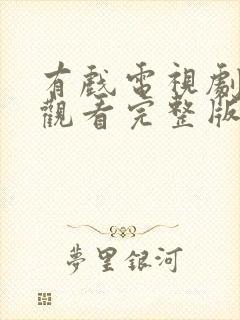 有戲電視劇
觀看完整版
夢里銀河